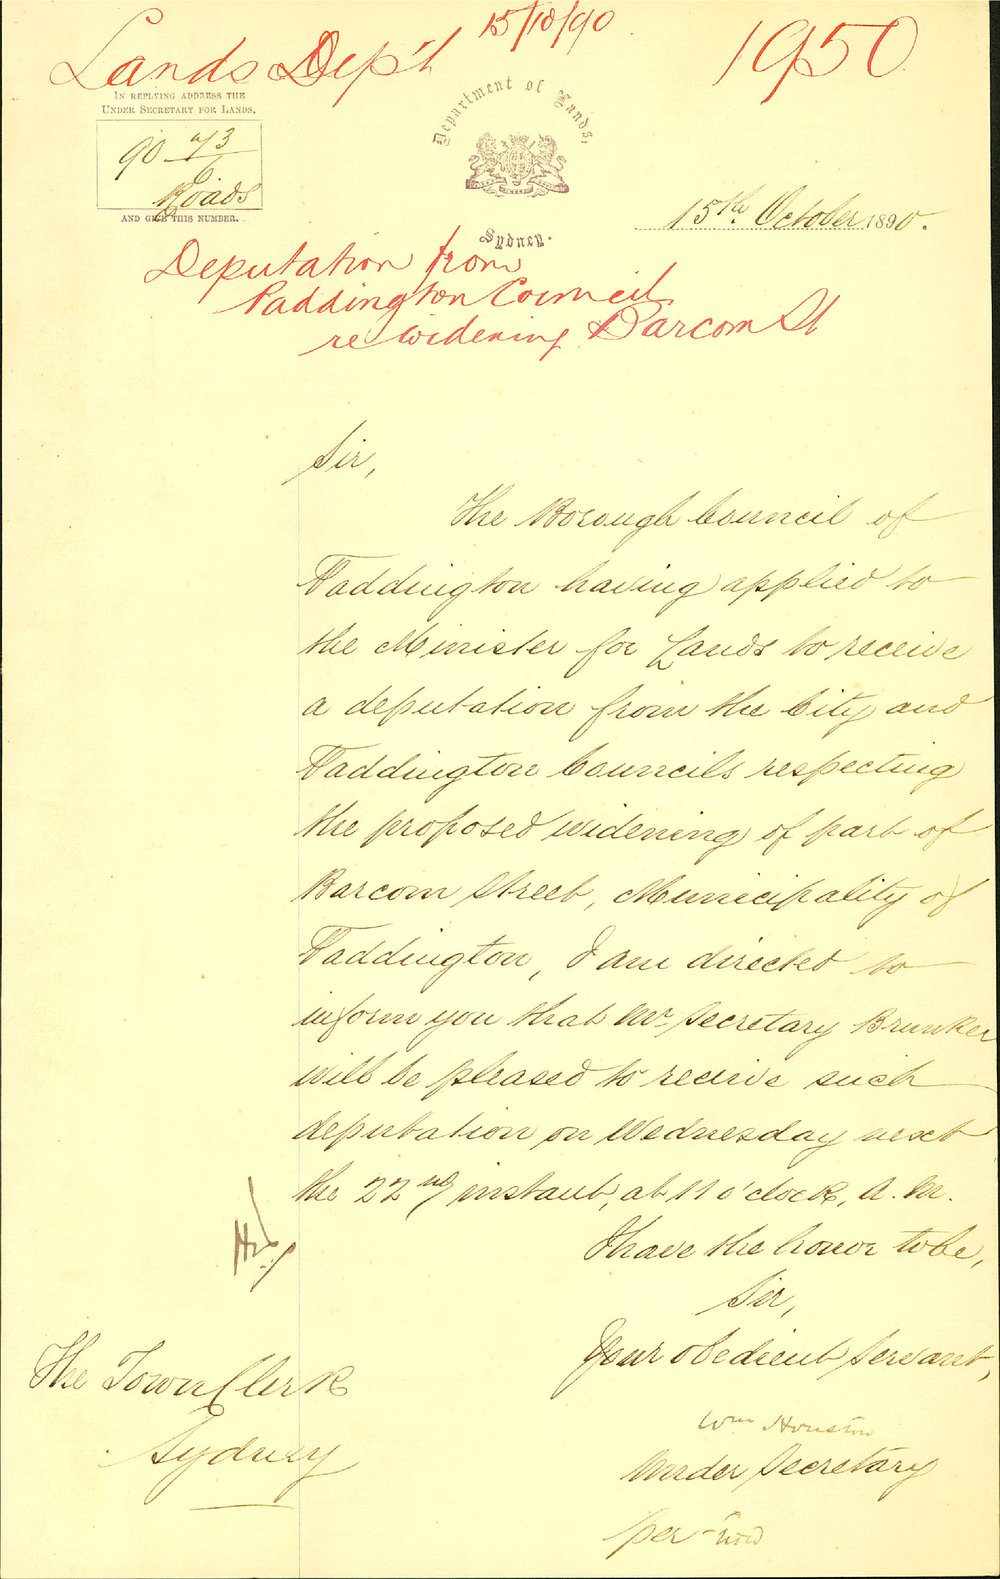 Lands Dep't 15/10/90 1950
IN REPLYING ADDRESS THE
UNDER SECRETARY FOR LANDS,
90
Roads
AND GIVE THIS NUMBER.
Department of Lands,
Sydney.
15th October 1890.
Deputation from
Paddington Council
re widening Barcom St
Sir,
The Borough Council of
Paddington having applied to
the Minister for Lands to receive
a deputation from the City and
Paddington Councils respecting
the proposed widening of part of
Barcom Street, Municipality of
Paddington, I am directed to
inform you that Mr. Secretary Brunker
will be pleased to receive such
deputation on Wednesday next
the 22nd instant, at 11 o'clock, A.M.
I have the honor to be,
Sir,
Your obedient Servant,
Wm Houston
Under Secretary
per
The Town Clerk
Sydney